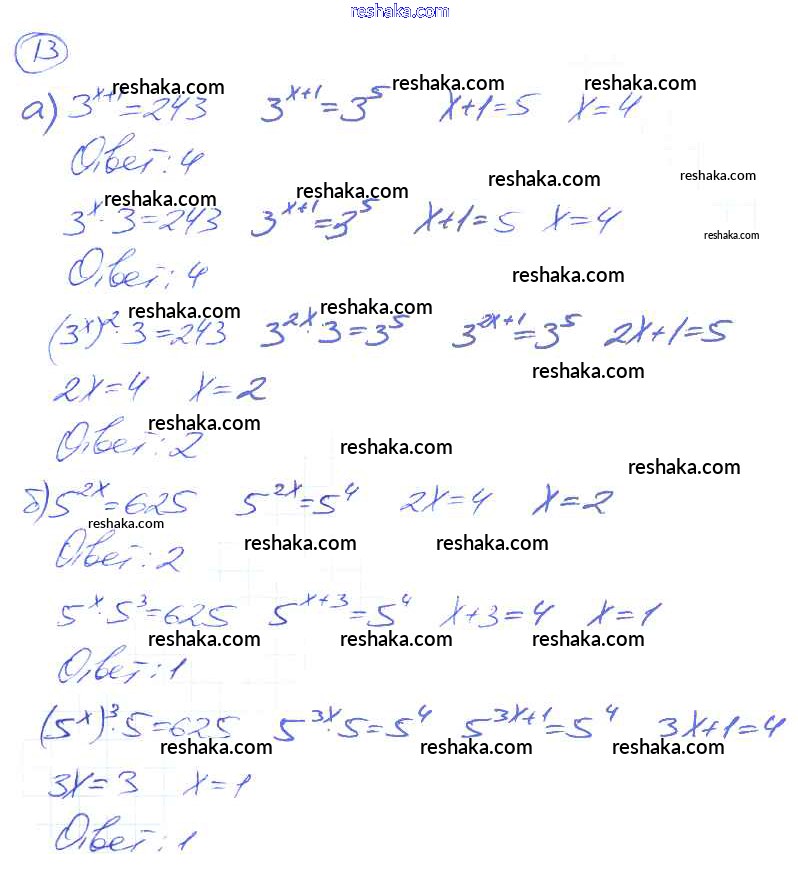 reshaka.com
13
а) 3^(x+1) = 243 3^(x+1) = 3^5 x+1=5 x=4
reshaka.com reshaka.com reshaka.com
Ответ: 4
reshaka.com reshaka.com
3^x · 3 = 243 3^(x+1) = 3^5 x+1=5 x=4
reshaka.com reshaka.com reshaka.com
Ответ: 4
reshaka.com
(3^x)^2 · 3 = 243 3^(2x) · 3 = 3^5 3^(2x+1) = 3^5 2x+1=5
reshaka.com reshaka.com
reshaka.com
2x=4 x=2
reshaka.com
Ответ: 2
reshaka.com reshaka.com
б) 5^(2x) = 625 5^(2x) = 5^4 2x=4 x=2
reshaka.com
Ответ: 2
reshaka.com reshaka.com
5^x · 5^3 = 625 5^(x+3) = 5^4 x+3=4 x=1
reshaka.com reshaka.com reshaka.com
Ответ: 1
(5^x)^3 · 5 = 625 5^(3x) · 5 = 5^4 5^(3x+1) = 5^4 3x+1=4
reshaka.com reshaka.com reshaka.com
3x=3 x=1
Ответ: 1